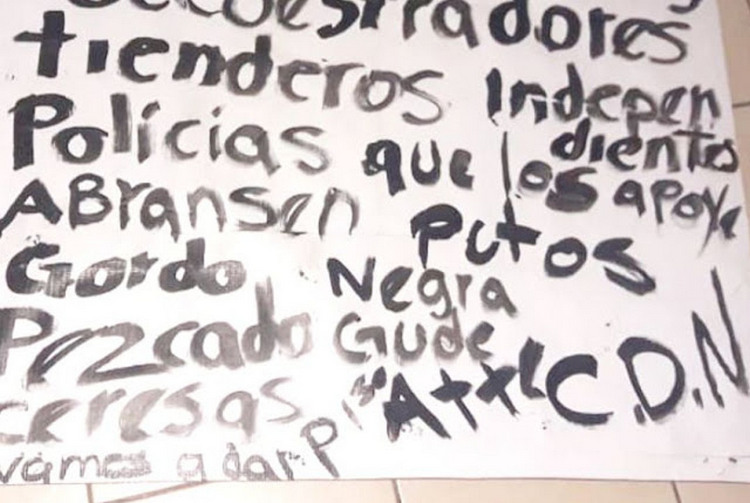 Secuestradores
tienderos Indepen
dientes
Policías que los apoye
ABransen
Putos
Gordo Negra
Pezcado Gude
ceresas
Att C.D.N
vamos a dar P